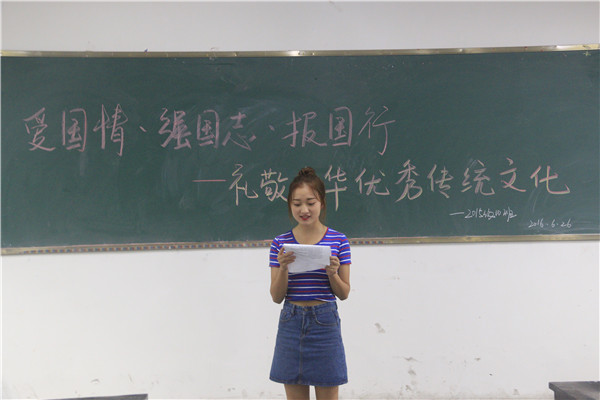 爱国情、强国志、报国行
—礼敬 华优秀传统文化
2016.6.26